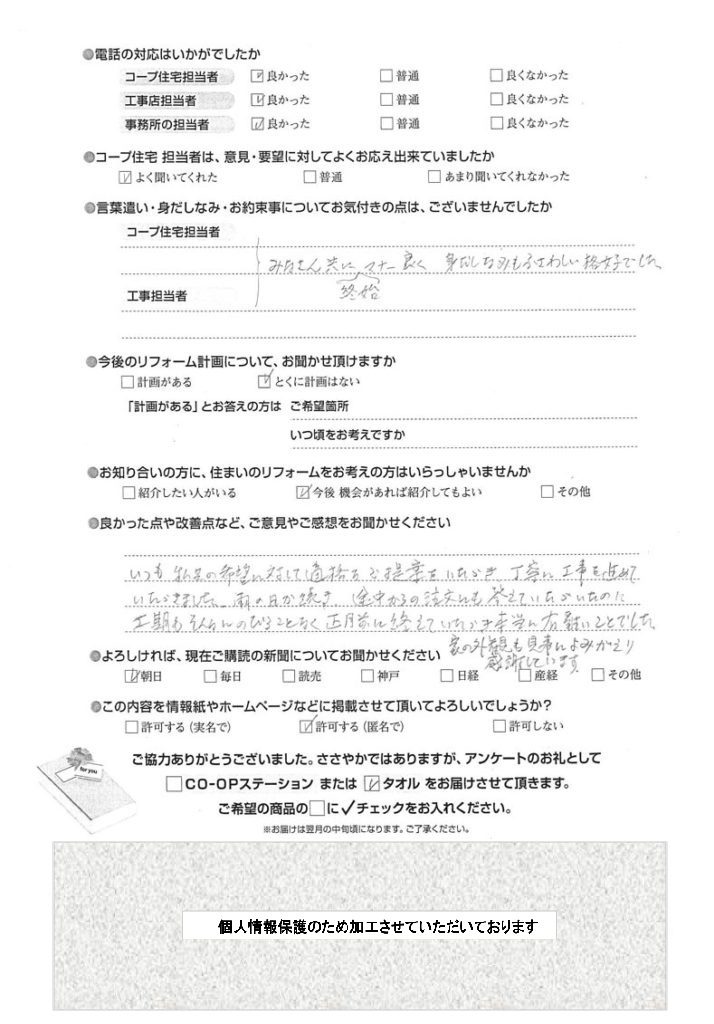 ●電話の対応はいかがでしたか
コープ住宅担当者 ☑良かった □普通 □良くなかった
工事店担当者 ☑良かった □普通 □良くなかった
事務所の担当者 ☑良かった □普通 □良くなかった
●コープ住宅 担当者は、意見・要望に対してよくお応え出来ていましたか
☑よく聞いてくれた □普通 □あまり聞いてくれなかった
●言葉遣い・身だしなみ・お約束事についてお気付きの点は、ございませんでしたか
コープ住宅担当者
みなさん共に マナー良く 身だしなみもふさわしい格好でした
終始
工事担当者
●今後のリフォーム計画について、お聞かせ頂けますか
□計画がある ☑とくに計画はない
「計画がある」とお答えの方は ご希望箇所
いつ頃をお考えですか
●お知り合いの方に、住まいのリフォームをお考えの方はいらっしゃいませんか
□紹介したい人がいる ☑今後 機会があれば紹介してもよい □その他
●良かった点や改善点など、ご意見やご感想をお聞かせください
いつも 私共の希望に対して適格なご提案をいただき 丁寧に工事を進めて
いただきました 雨の日が続き 途中からの注文にも答えていただいたのに
工期もそんなにのびることなく 正月前に終えていただき本当に有難いことでした
家の外観も見事によみがえり
感謝しています
●よろしければ、現在ご購読の新聞についてお聞かせください
☑朝日 □毎日 □読売 □神戸 □日経 □産経 □その他
●この内容を情報紙やホームページなどに掲載させて頂いてよろしいでしょうか?
□許可する(実名で) ☑許可する(匿名で) □許可しない
for you
ご協力ありがとうございました。ささやかではありますが、アンケートのお礼として
□CO-OPステーション または ☑タオル をお届けさせて頂きます。
ご希望の商品の□に✓チェックをお入れください。
※お届けは翌月の中旬頃になります。ご了承ください。
個人情報保護のため加工させていただいております